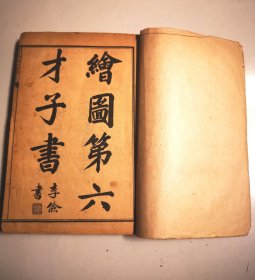 繪圖第六
才子書
李俆書